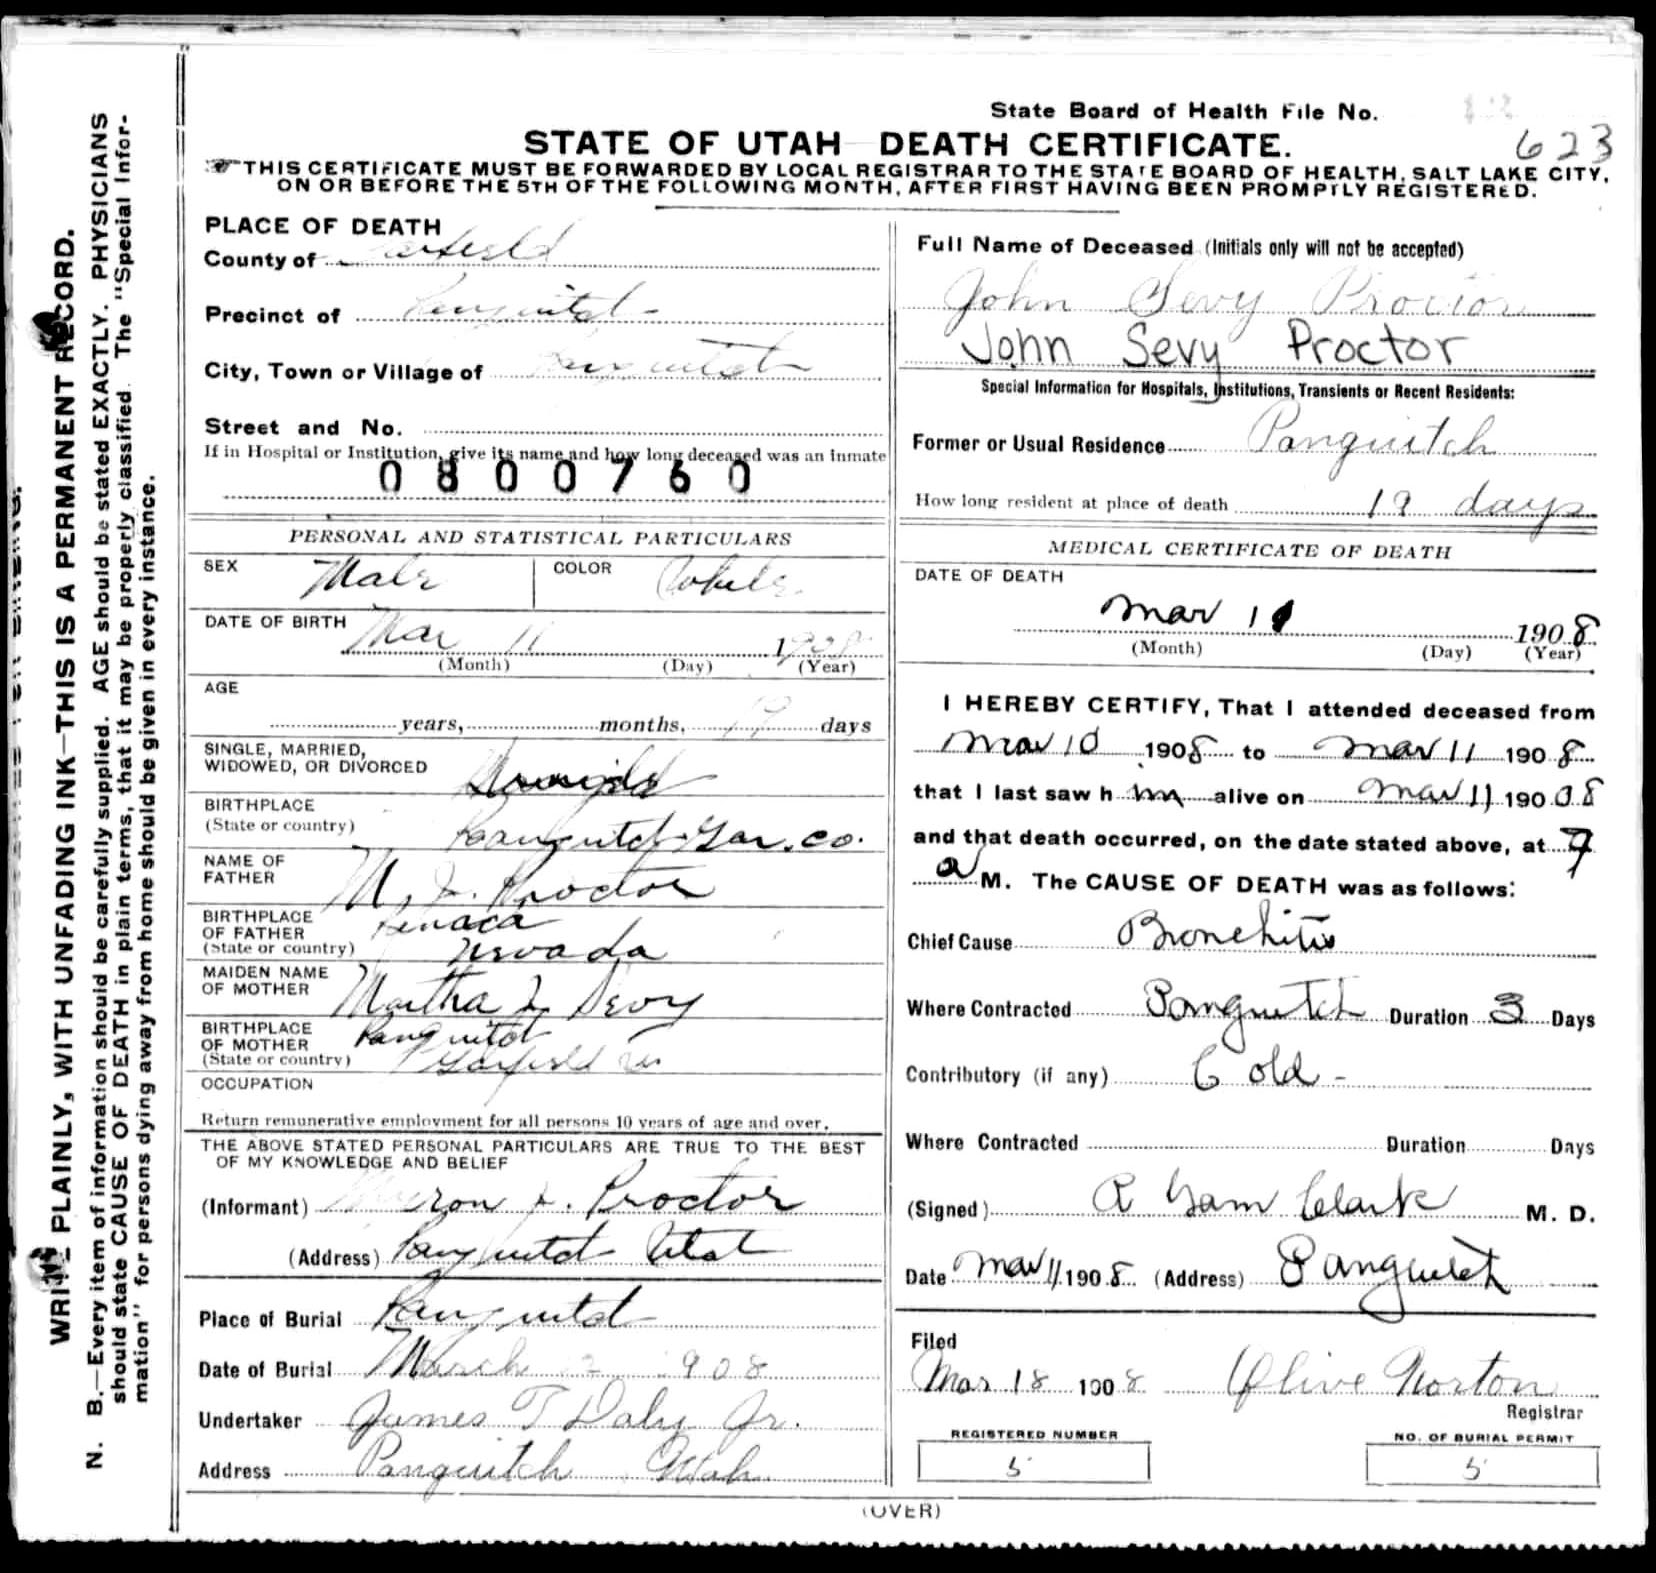 State Board of Health File No.
623
STATE OF UTAH DEATH CERTIFICATE.
THIS CERTIFICATE MUST BE FORWARDED BY LOCAL REGISTRAR TO THE STATE BOARD OF HEALTH, SALT LAKE CITY,
ON OR BEFORE THE 5TH OF THE FOLLOWING MONTH, AFTER FIRST HAVING BEEN PROMPTLY REGISTERED.
WRITE PLAINLY, WITH UNFADING INK—THIS IS A PERMANENT RECORD.
N. B.—Every item of information should be carefully supplied. AGE should be stated EXACTLY. PHYSICIANS
should state CAUSE OF DEATH in plain terms, that it may be properly classified. The "Special Infor-
mation" for persons dying away from home should be given in every instance.
PLACE OF DEATH
County of Garfield
Precinct of Panguitch
City, Town or Village of Panguitch
Street and No.
If in Hospital or Institution, give its name and how long deceased was an inmate
0800760
PERSONAL AND STATISTICAL PARTICULARS
SEX Male COLOR White
DATE OF BIRTH Mar 11 1908
(Month) (Day) (Year)
AGE
years, months, 19 days
SINGLE, MARRIED,
WIDOWED, OR DIVORCED
BIRTHPLACE
(State or country) Panguitch Gar. Co.
NAME OF
FATHER M. J. Proctor
BIRTHPLACE Panaca
OF FATHER
(State or country) Nevada
MAIDEN NAME
OF MOTHER Martha J Sevy
BIRTHPLACE
OF MOTHER Panguitch
(State or country) Garfield Co
OCCUPATION
Return remunerative employment for all persons 10 years of age and over.
THE ABOVE STATED PERSONAL PARTICULARS ARE TRUE TO THE BEST
OF MY KNOWLEDGE AND BELIEF
(Informant) Myron J. Proctor
(Address) Panguitch Utah
Place of Burial Panguitch
Date of Burial March 12 1908
Undertaker James T Daly Jr.
Address Panguitch Utah
Full Name of Deceased (Initials only will not be accepted)
John Sevy Proctor
John Sevy Proctor
Special Information for Hospitals, Institutions, Transients or Recent Residents:
Former or Usual Residence Panguitch
How long resident at place of death 19 days
MEDICAL CERTIFICATE OF DEATH
DATE OF DEATH
Mar 11 1908
(Month) (Day) (Year)
I HEREBY CERTIFY, That I attended deceased from
Mar 10 1908 to Mar 11 1908
that I last saw him alive on Mar 11 190 08
and that death occurred, on the date stated above, at 7
a M. The CAUSE OF DEATH was as follows:
Chief Cause Bronchitis
Where Contracted Panguitch Duration 3 Days
Contributory (if any) Cold -
Where Contracted Duration Days
(Signed) R Garn Clark M. D.
Date Mar 11 1908 (Address) Panguitch
Filed
Mar 18 1908 Olive Norton
Registrar
REGISTERED NUMBER
5
NO. OF BURIAL PERMIT
5
(OVER)